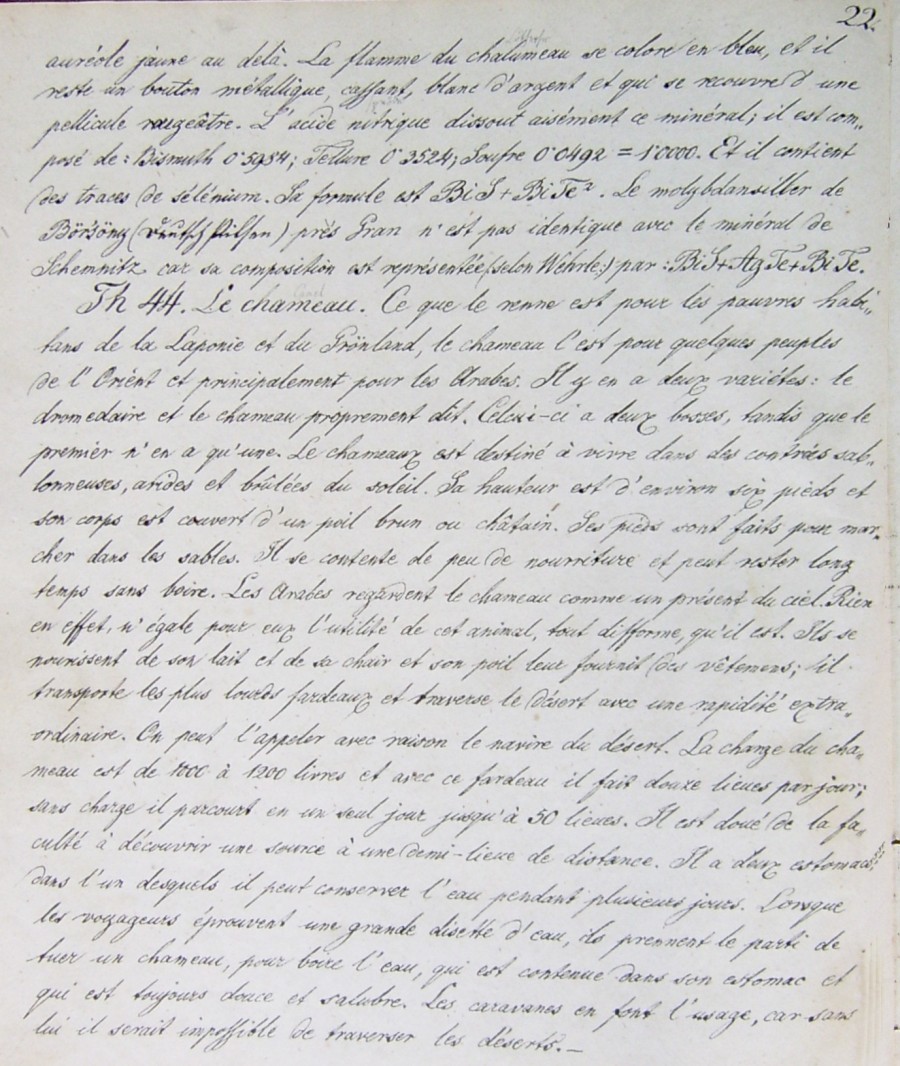 22.
auréole jaune au delà. La flamme du chalumeau se colore en bleu, et il
reste un bouton métallique, cassant, blanc d'argent et qui se recouvre d'une
pellicule rougeâtre. L'acide nitrique dissout aisément ce minéral; il est com„
posé de: Bismuth 0˙5984; Tellure 0˙3524; Soufre 0˙0492 = 1˙0000. Et il contient
des traces de sélénium. Sa formule est BiS + BiTe². Le molybdansilber de
Börsöny (Deutsch Pilsen) près Gran n'est pas identique avec le minéral de
Schemnitz car sa composition est représentée (selon Wehrle:) par: BiS+AgTe+BiTe.
Th 44. Le chameau. Ce que le renne est pour les pauvres habi„
tans de la Laponie et du Grönland, le chameau l'est pour quelques peuples
de l'Orient et principalement pour les Arabes. Il y en a deux variétés: le
dromedaire et le chameau proprement dit. Celui-ci a deux bosses, tandis que le
premier n'en a qu'une. Le chameaux est destiné à vivre dans des contrées sab„
lonneuses, arides et brûlées du soleil. Sa hauteur est d'environ six pieds et
son corps est couvert d'un poil brun ou châtain. Ses pieds sont faits pour mar„
cher dans les sables. Il se contente de peu de nourriture et peut rester long
temps sans boire. Les Arabes regardent le chameau comme un présent du ciel. Rien
en effet, n'égale pour eux l'utilité de cet animal, tout difforme, qu'il est. Ils se
nourissent de son lait et de sa chair et son poil leur fournit des vêtemens; il
transporte les plus lourds fardeaux et traverse le désert avec une rapidité extra„
ordinaire. On peut l'appeler avec raison le navire du désert. La charge du cha„
meau est de 1000 à 1200 livres et avec ce fardeau il fait douze lieues par jour;
sans charge il parcourt en un seul jour jusqu'à 50 lieues. Il est doué de la fa„
culté à découvrir une source à une demi-lieue de distance. Il a deux estomacs,
dans l'un desquels il peut conserver l'eau pendant plusieurs jours. Lorsque
les voyageurs éprouvent une grande disette d'eau, ils prennent le parti de
tuer un chameau, pour boire l'eau, qui est contenue dans son estomac et
qui est toujours douce et salubre. Les caravanes en font l'usage, car sans
lui il serait impossible de traverser les déserts.—